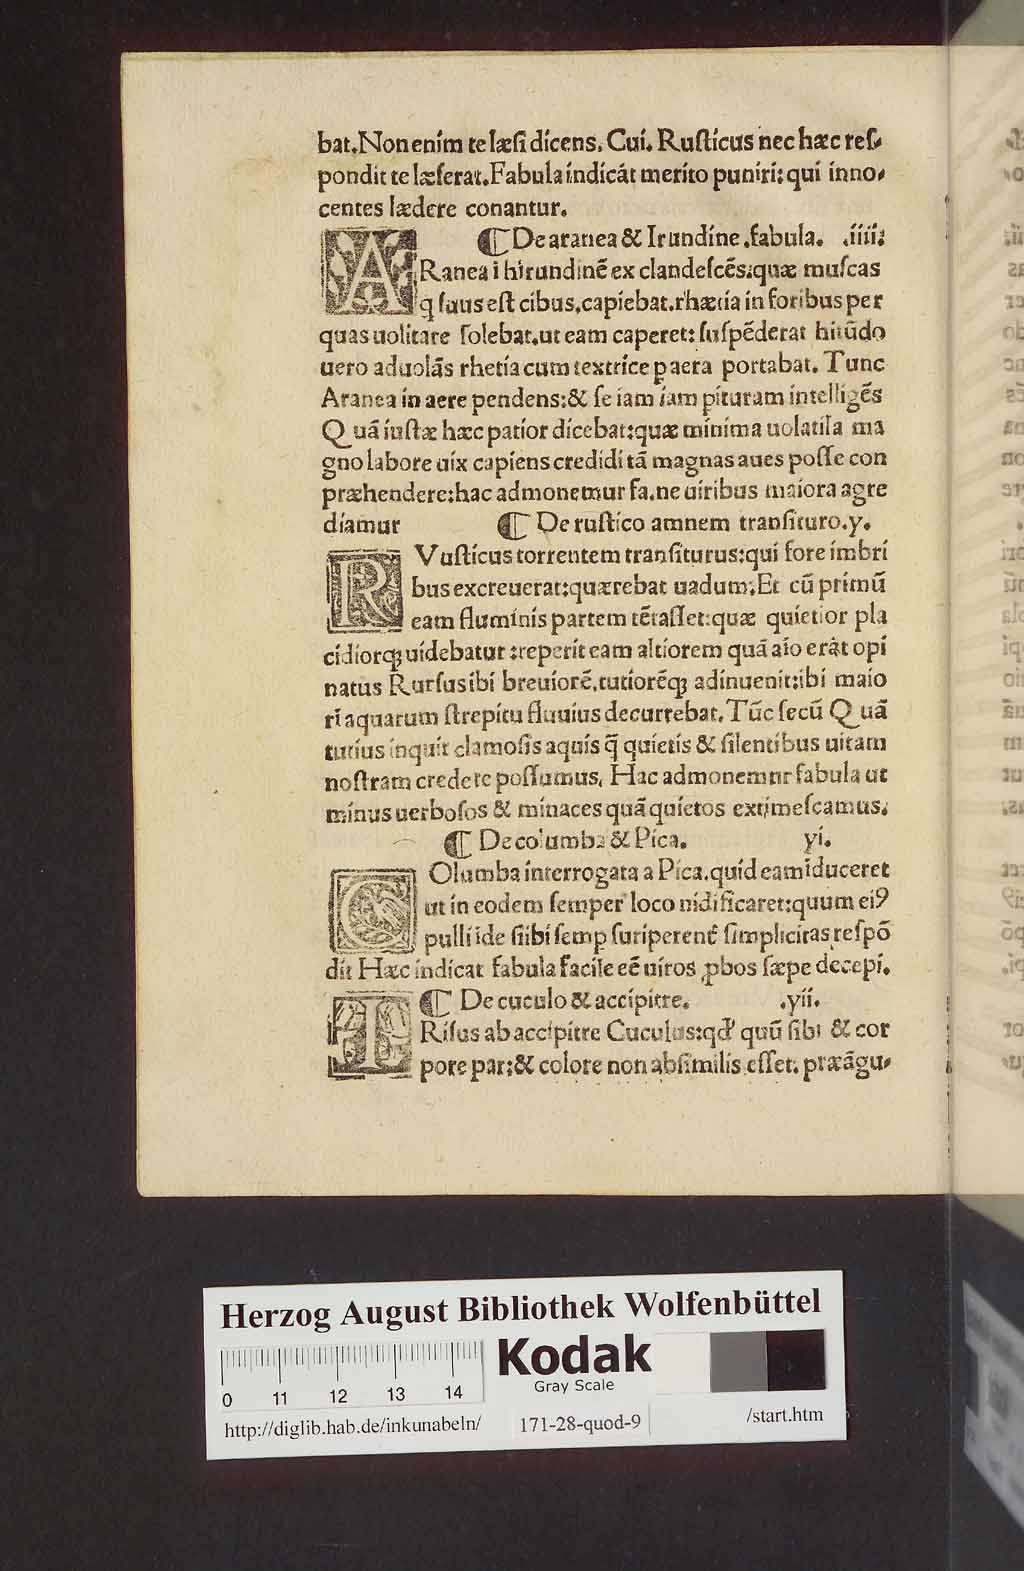 bat.Non enim te læſi dicens. Cui. Ruſticus nec hæc reſ⸗
pondit te læſerat.Fabula indicāt merito puniri: qui inno⸗
centes lædere conantur.
¶ De aranea & Irundine .fabula. .iiii:
ARanea i hirundinē ex clandeſcēs:quæ muſcas
q ſuus eſt cibus.capiebat.rhætia in foribus per
quas uolitare ſolebat.ut eam caperet: ſuſpēderat hirūdo
uero aduolās rhetia cum textrice p aera portabat. Tunc
Aranea in aere pendens:& ſe iam iam pituram intelligēs
Quā iuſtæ hæc patior dicebat:quæ minima uolatila ma
gno labore uix capiens credidi tā magnas aues poſſe con
præhendere:hac admonemur fa.ne uiribus maiora agre
diamur ¶ De ruſtico amnem tranſituro.y.
RVuſticus torrentem tranſiturus:qui fore imbri
bus excreuerat:quærebat uadum.Et cū primū
eam fluminis partem tētaſſet:quæ quietior pla
cidiorq; uidebatur :reperit eam altiorem quā aīo erāt opi
natus Rurſus ibi breuiorē.tutiorēq; adinuenit:ibi maio
ri aquarum ſtrepitu fluuius decurrebat. Tūc ſecū Quā
tutius inquit clamoſis aquis q̄ quietis & ſilentibus uitam
noſtram credere poſſumus. Hac admonemur fabula ut
minus uerboſos & minaces quā quietos extimeſcamus.
¶ De columba & Pica. yi.
COlumba interrogata a Pica.quid eam iduceret
ut in eodem ſemper loco nidificaret:quum eiꝰ
pulli ide ſiibi ſemp ſuriperent ſimplicitas reſpō
dit Hæc indicat fabula facile eē uiros ꝓbos ſæpe decepi.
¶ De cuculo & accipitre. .yii.
TRiſus ab accipitre Cuculus:qd quū ſibi & cor
pore par:& colore non abſimilis eſſet. præāgu⸗
Herzog August Bibliothek Wolfenbüttel
Kodak
Gray Scale
0 11 12 13 14
http://diglib.hab.de/inkunabeln/ 171-28-quod-9 /start.htm